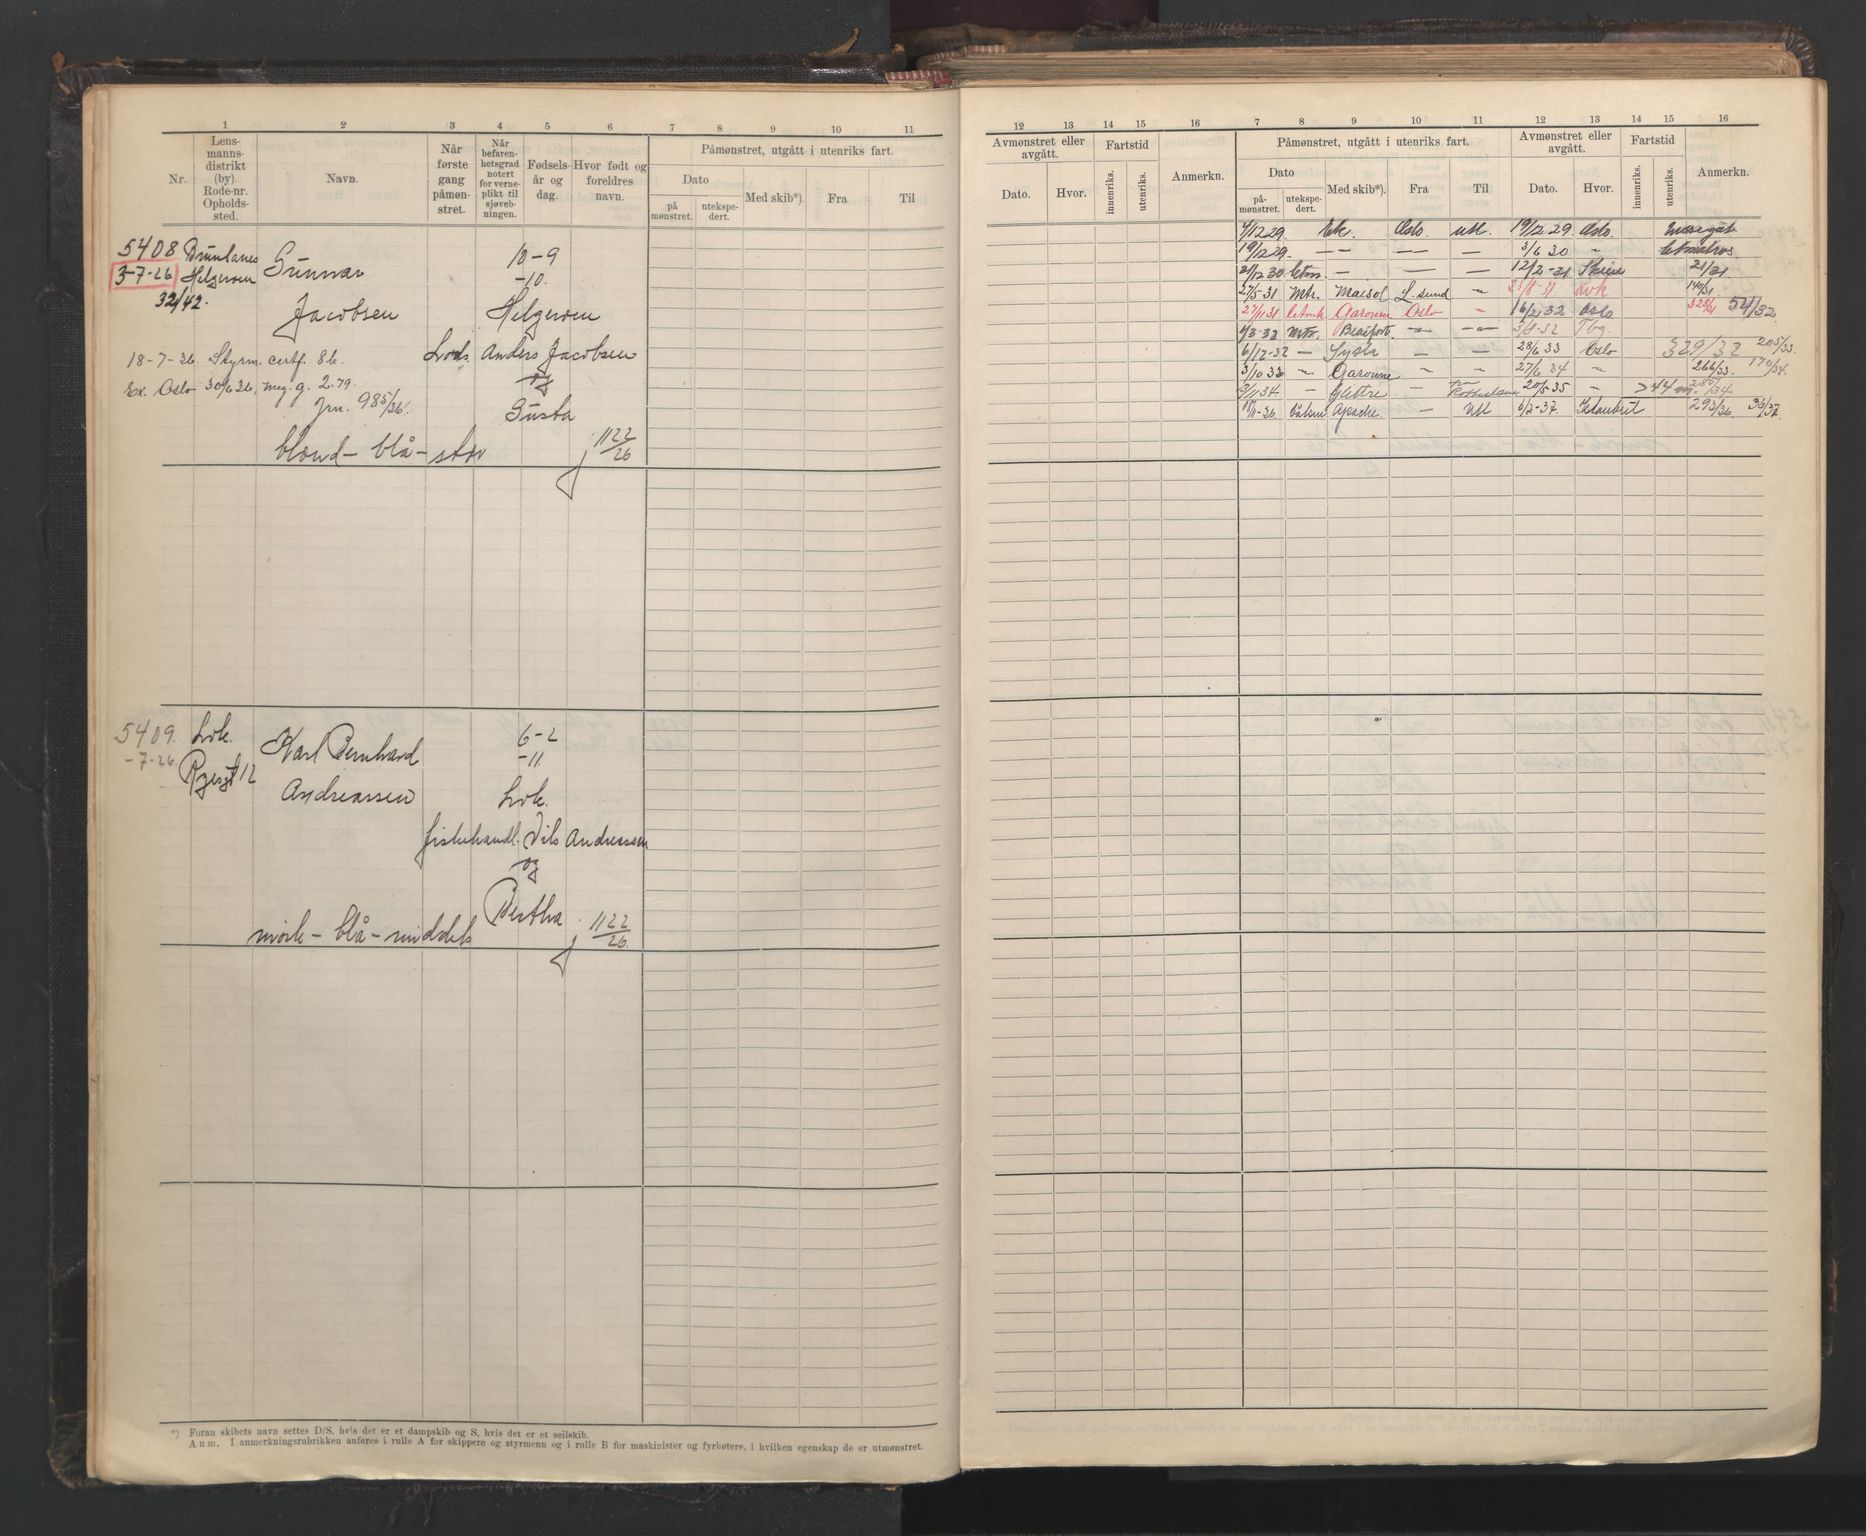 1 2 3 4 5 6 7 8 9 10 11
Nr.
Lens-
manns-
distrikt
(by).
Rode-nr.
Opholds-
sted.
Navn.
Når
første
gang
påmøn-
stret.
Når
befaren-
hetsgrad
notert
for verne-
plikt til
sjøveb-
ningen.
Fødsels-
år og
dag.
Hvor født og
foreldres
navn.
Påmønstret, utgått i utenriks fart.
Dato
på
mønstret.
utekspe-
dert.
Med skib*).
Fra
Til
5408 Brunlanes
3-7-26 Helgeroen
32/42.
Gunnar
Jacobsen
10-9
-10.
Helgeroen
Lods. Anders Jacobsen
og
Gusta
18-7-36. Styrm. certf. 86.
Ex. Oslo 30/6 36, meg. g. 2.79.
Jrn. 985/36.
blond - blå - stor
1122/26
5409. Lvk.
-7-26.
Karl Bernhard
Andreassen
6-2
-11
Lvk.
fiskehandl. Nils Andreassen
og
Bertha
mørk - blå - middels
1122/26.
*) Foran skibets navn settes D/S, hvis det er et dampskib og S, hvis det er et seilskib.
Anm. I anmerkningsrubrikken anføres i rulle A for skippere og styrmenn og i rulle B for maskinister og fyrbøtere, i hvilken egenskap de er utmønstret.
12 13 14 15 16 7 8 9 10 11 12 13 14 15 16
Avmønstret eller
avgått.
Fartstid
Dato.
Hvor.
innenriks.
utenriks.
Anmerkn.
Påmønstret, utgått i utenriks fart.
Dato
på-
mønstret.
utekspe-
dert.
Med skib*).
Fra
Til
Avmønstret eller
avgått.
Dato.
Hvor.
Fartstid
innenriks.
utenriks.
Anmerkn.
Oslo. utl. 19/12 29. Oslo.
19/12 29. — — — — 3/6 30 "
21/12 30. — — — 12/2-31
27/5-31 Mtr. L. sund — 25/8-31 Lvk 140/31
27/11 31 Garonne Oslo " 16/2 32 Oslo 328/31 54/32
Mtr. Beaufort — — 3/8-32 Tbg.
6/12-32 — — — 28/6 33 Oslo 329/32 205/33.
3/10 33 " Garonne " " 27/6 34 " 266/33. 170/34.
— — 20/5-35 "
Apache. — Utl 6/2-37. 293/36 36/37.